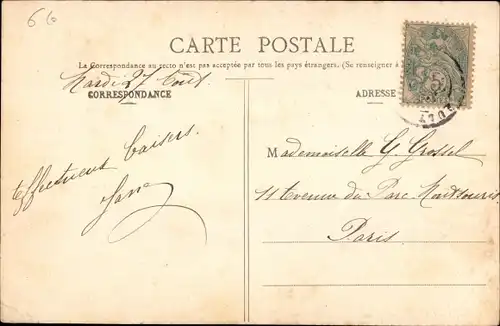 66
CARTE POSTALE
La Correspondance au recto n'est pas acceptée par tous les pays étrangers. (Se renseigner à
Mardi 27 Août
CORRESPONDANCE
ADRESSE
Affectueux baisers.
Mademoiselle G. Grossel
11 Avenue du Parc Montsouris
Paris